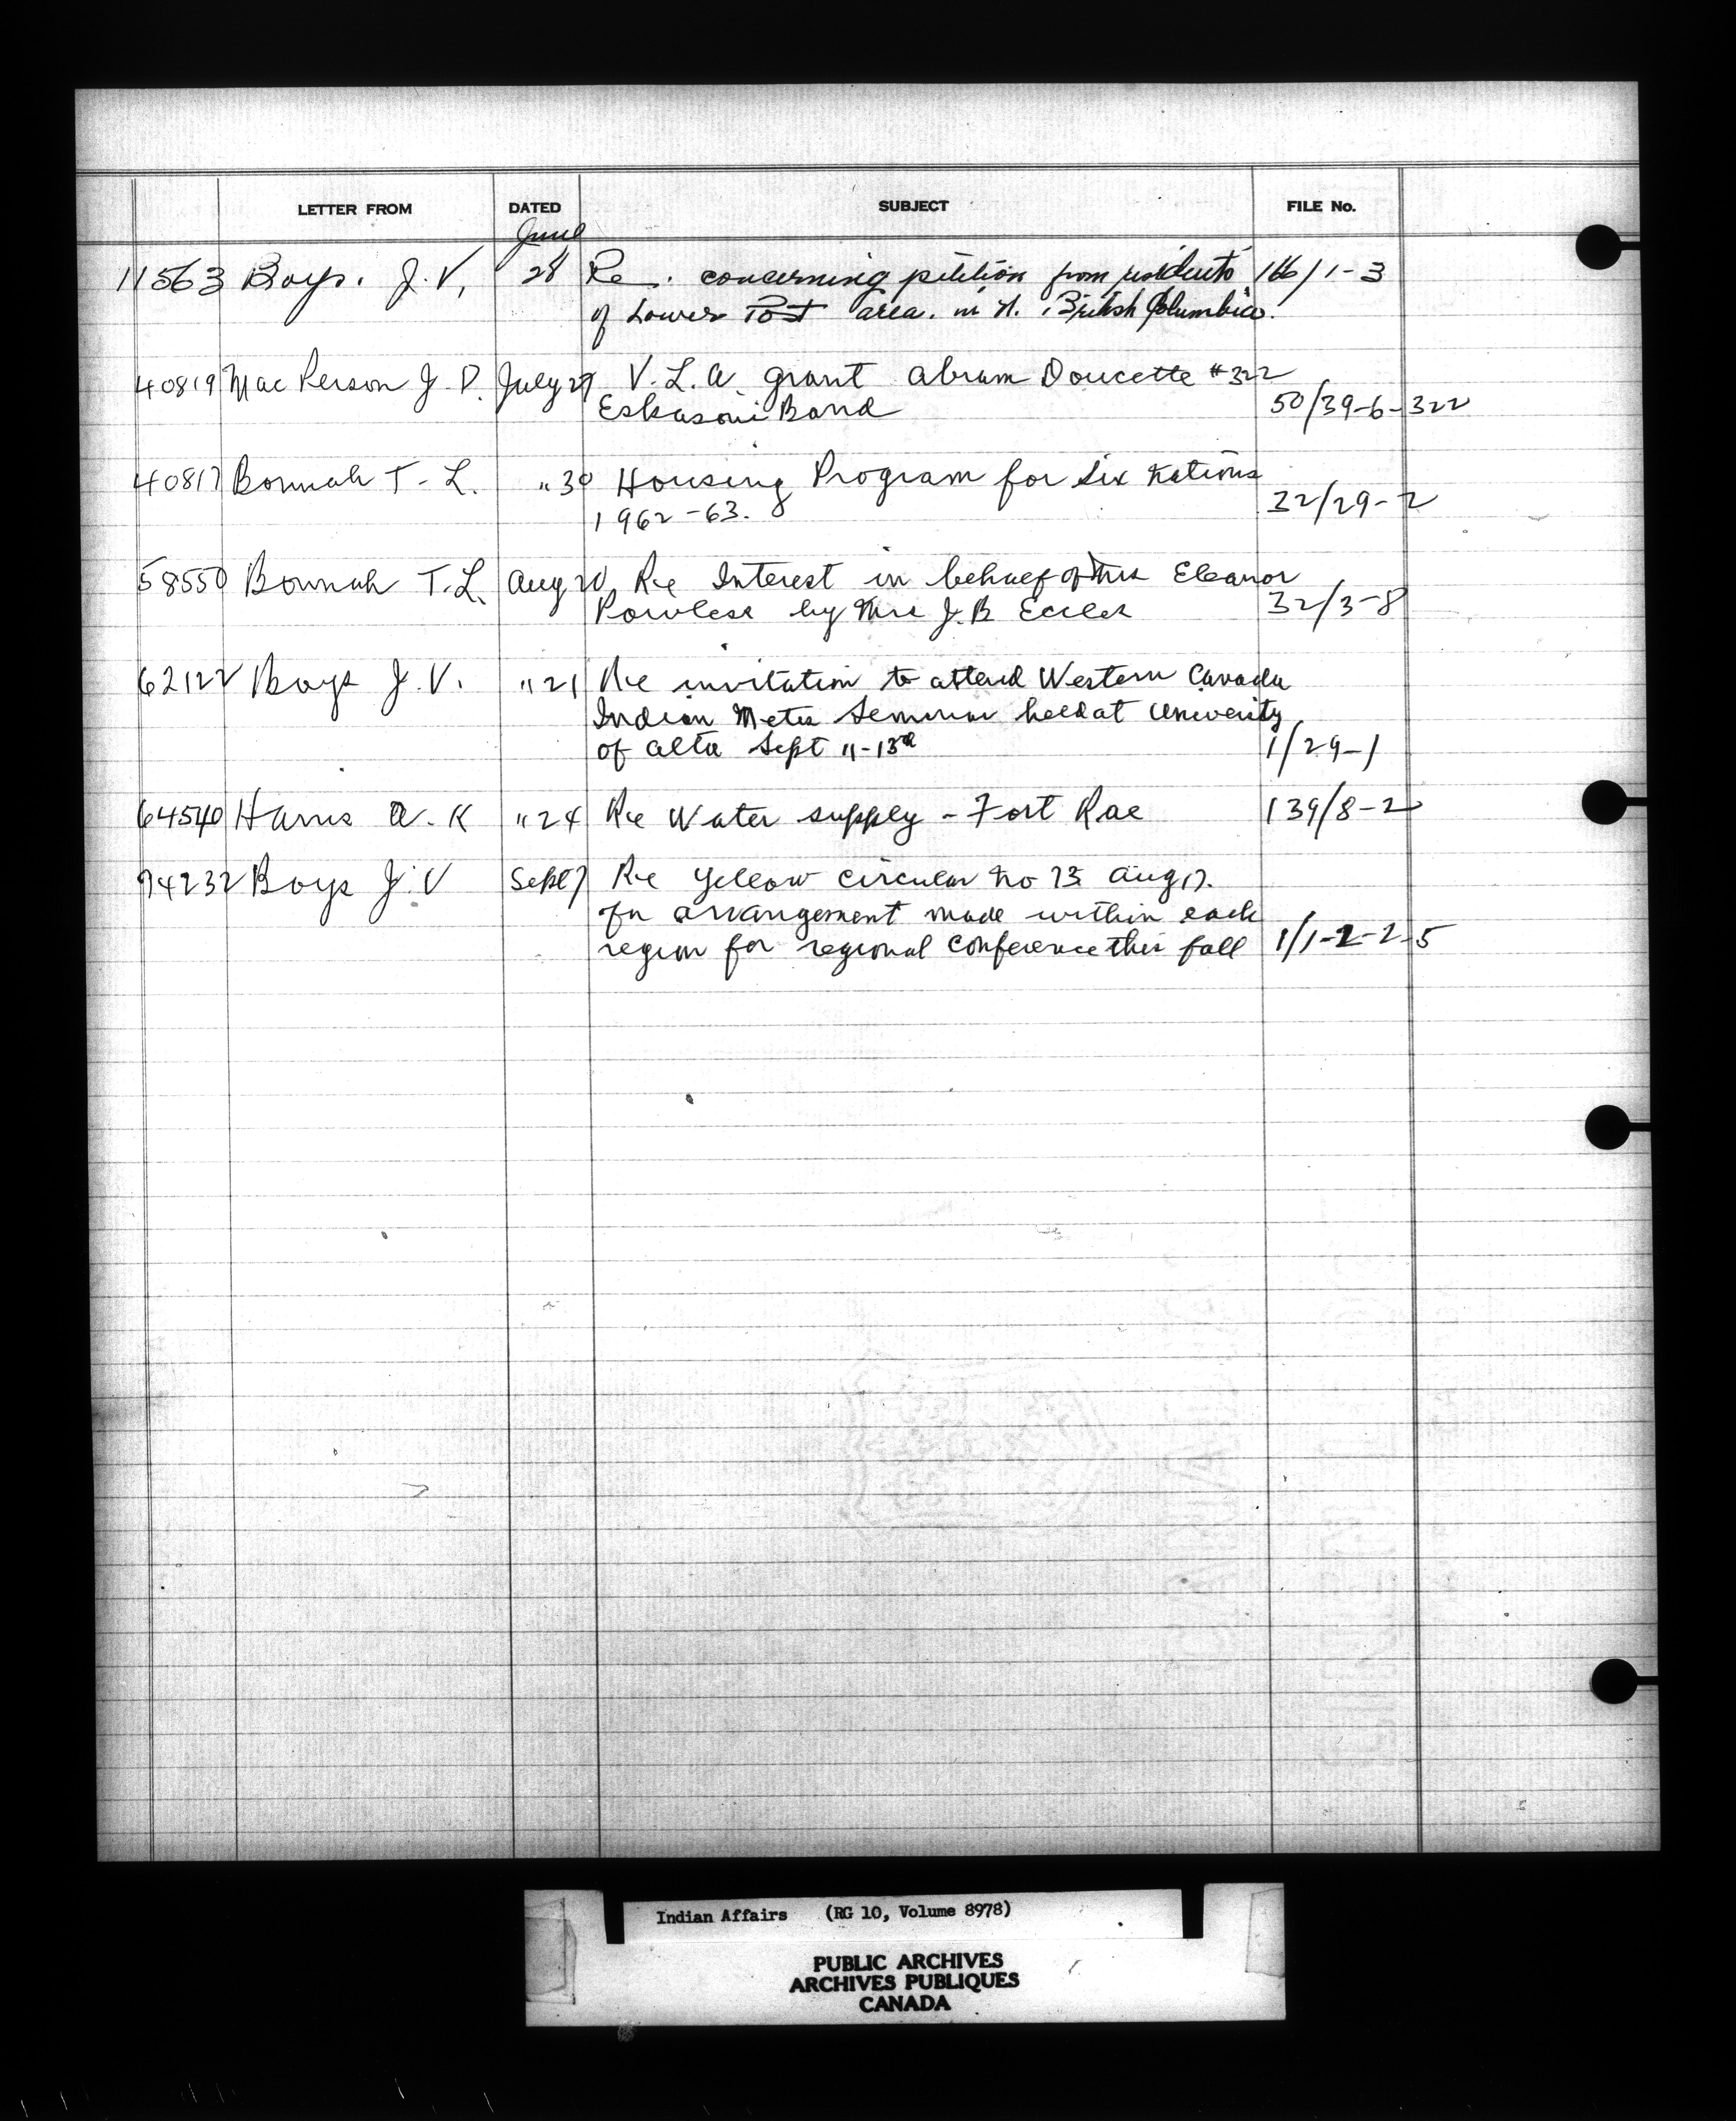 LETTER FROM DATED SUBJECT FILE No.
June
11563 Boys. J.V. 28 Re. concerning petition from residents 166/1-3
of Lower Post area. in N. British Columbia.
40819 MacPerson J.D. July 27 V.L.A grant Abram Doucette #322
Eskasoni Band 50/39-6-322
40817 Bonnah T-L. "30 Housing Program for Six Nations
1962-63. 32/29-2
58550 Bonnah T.L. Aug 20 Re Interest in behalf of Mrs Eleanor
Powless by Mrs J.B Eccles 32/3-8
62122 Boys J.V. "21 Re invitation to attend Western Canada
Indian Metis Seminar held at University
of Alta Sept 11-13th 1/29-1
64540 Harris A.K "24 Re Water supply - Fort Rae 139/8-2
74232 Boys J.V Sept 7 Re Yellow circular No 73 Aug 17.
for arrangement made within each
region for regional conference this fall 1/1-2-2-5
Indian Affairs (RG 10, Volume 8978)
PUBLIC ARCHIVES
ARCHIVES PUBLIQUES
CANADA